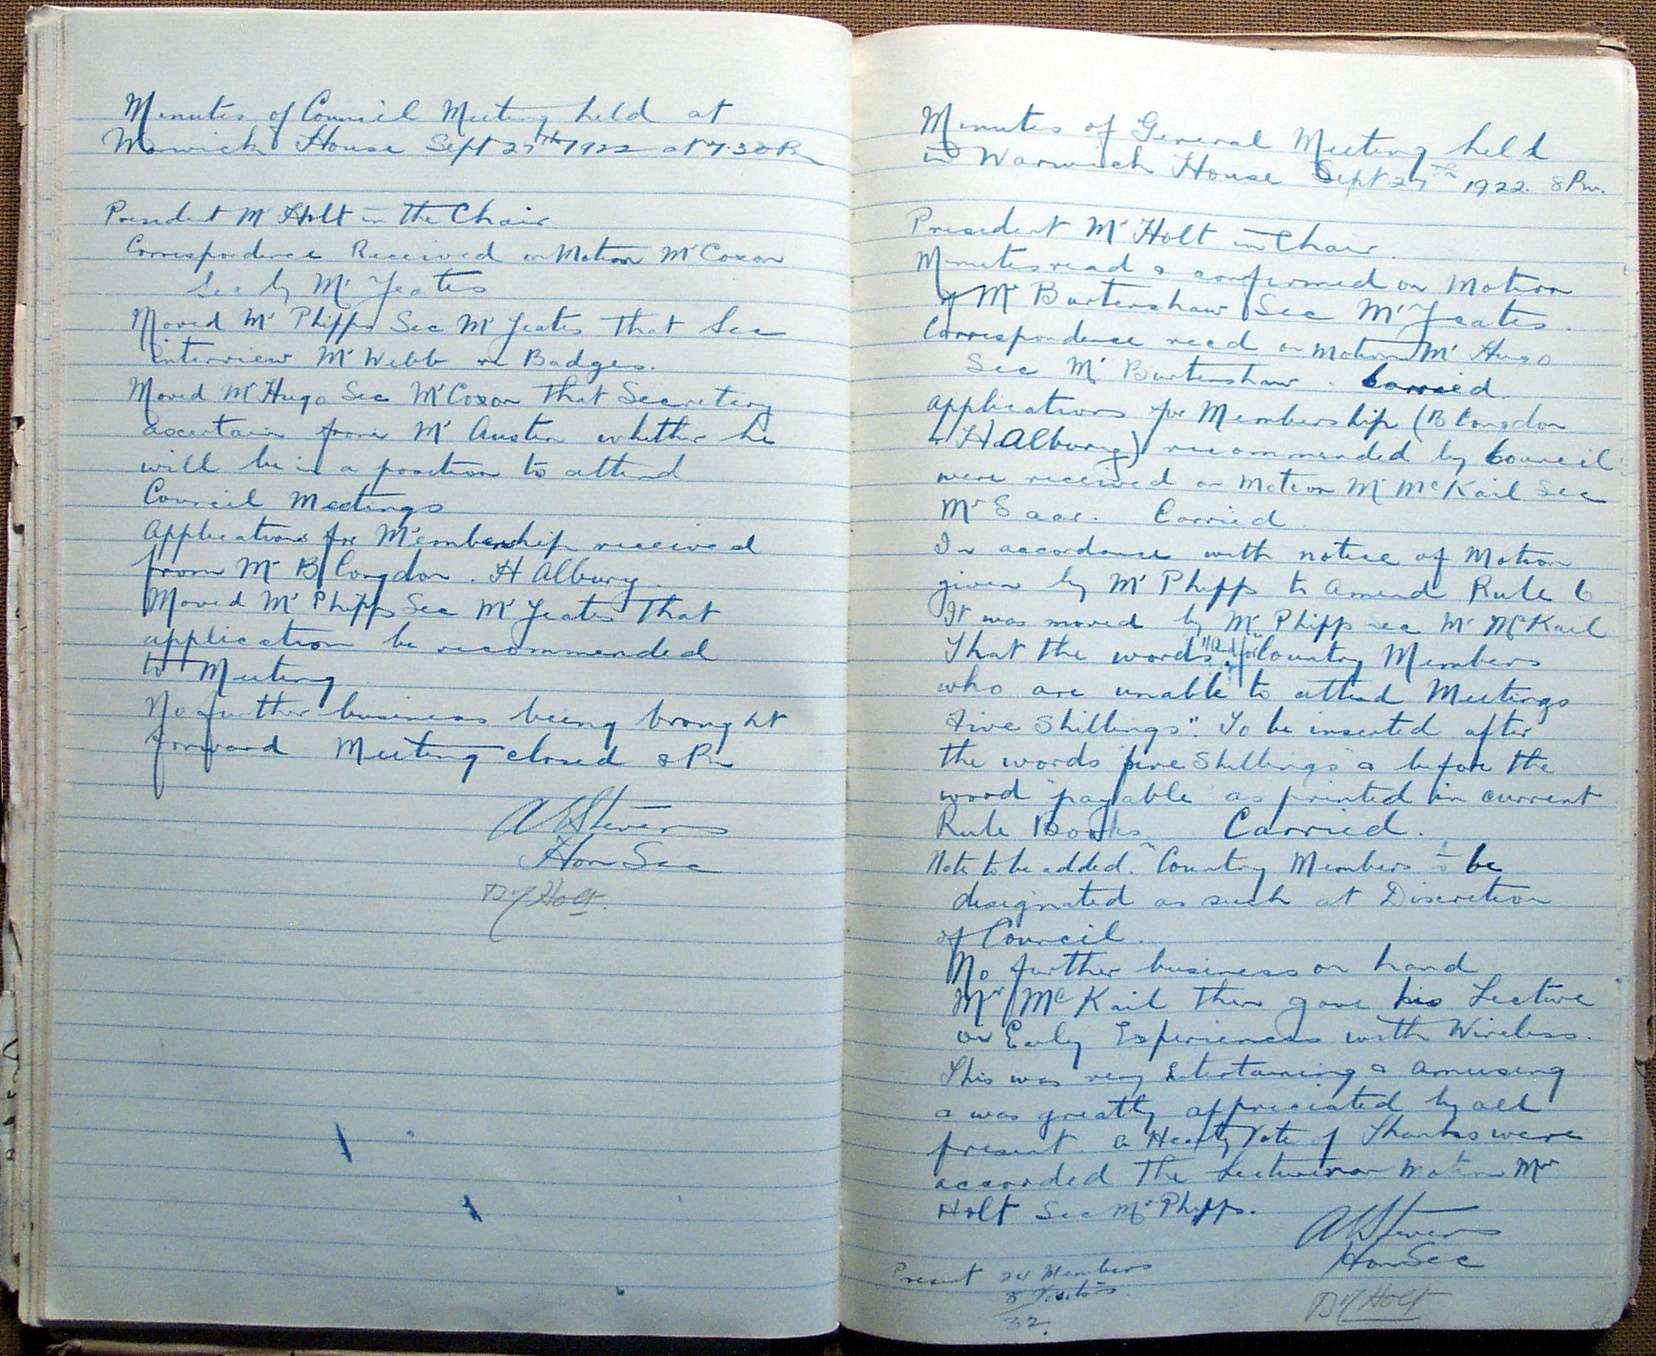 Minutes of Council Meeting held at
Warwick House Sept 27th 1922 at 7.30 Pm
President Mr Holt in the Chair
Correspondence Received on Motion Mr Coxon
Sec by Mr Yeates
Moved Mr Phipps Sec Mr Yeates That Sec
interview Mr Webb re Badges.
Moved Mr Hugo Sec Mr Coxon That Secretary
ascertain from Mr Austin whether he
will be in a position to attend
Council Meetings
Applications for Membership received
from Mr B Congdon. H Albury.
Moved Mr Phipps Sec Mr Yeates That
application be recommended
to Meeting
No further business being brought
forward Meeting closed 8 Pm
A Stevens
Hon Sec
Holt.
Minutes of General Meeting held
in Warwick House Sept 27th 1922. 8 Pm.
President Mr Holt in Chair.
Minutes read & confirmed on Motion
of Mr Burtenshaw Sec Mr Yeates.
Correspondence recd on motion Mr Hugo
Sec Mr Burtenshaw. Carried.
Applications for Membership (B Congdon
& H Albury) recommended by Council
were received on motion Mr McKail Sec
Mr Saar. Carried
In accordance with notice of Motion
given by Mr Phipps to Amend Rule 6
It was moved by Mr Phipps sec Mr McKail
That the words "And for Country Members
who are unable to attend Meetings
Five Shillings". To be inserted after
the words five Shillings & before the
word payable as printed in current
Rule Books. Carried.
Note to be added. "Country Members to be
designated as such at Discretion
of Council.
No further business on hand
Mr McKail then gave his Lecture
on Early Experiences with Wireless.
This was very Entertaining & Amusing
& was greatly appreciated by all
present. A Hearty Vote of Thanks were
accorded The Lecturer on Motion Mr
Holt Sec Mr Phipps.
A Stevens
Hon Sec
Holt
Present 24 Members
8 Visitors
32.